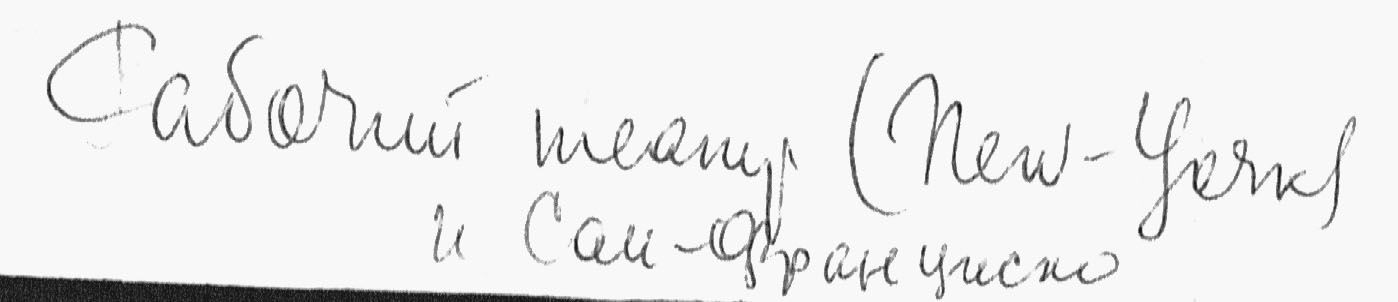 Рабочий театр (New-York)
и Сан-Франциско